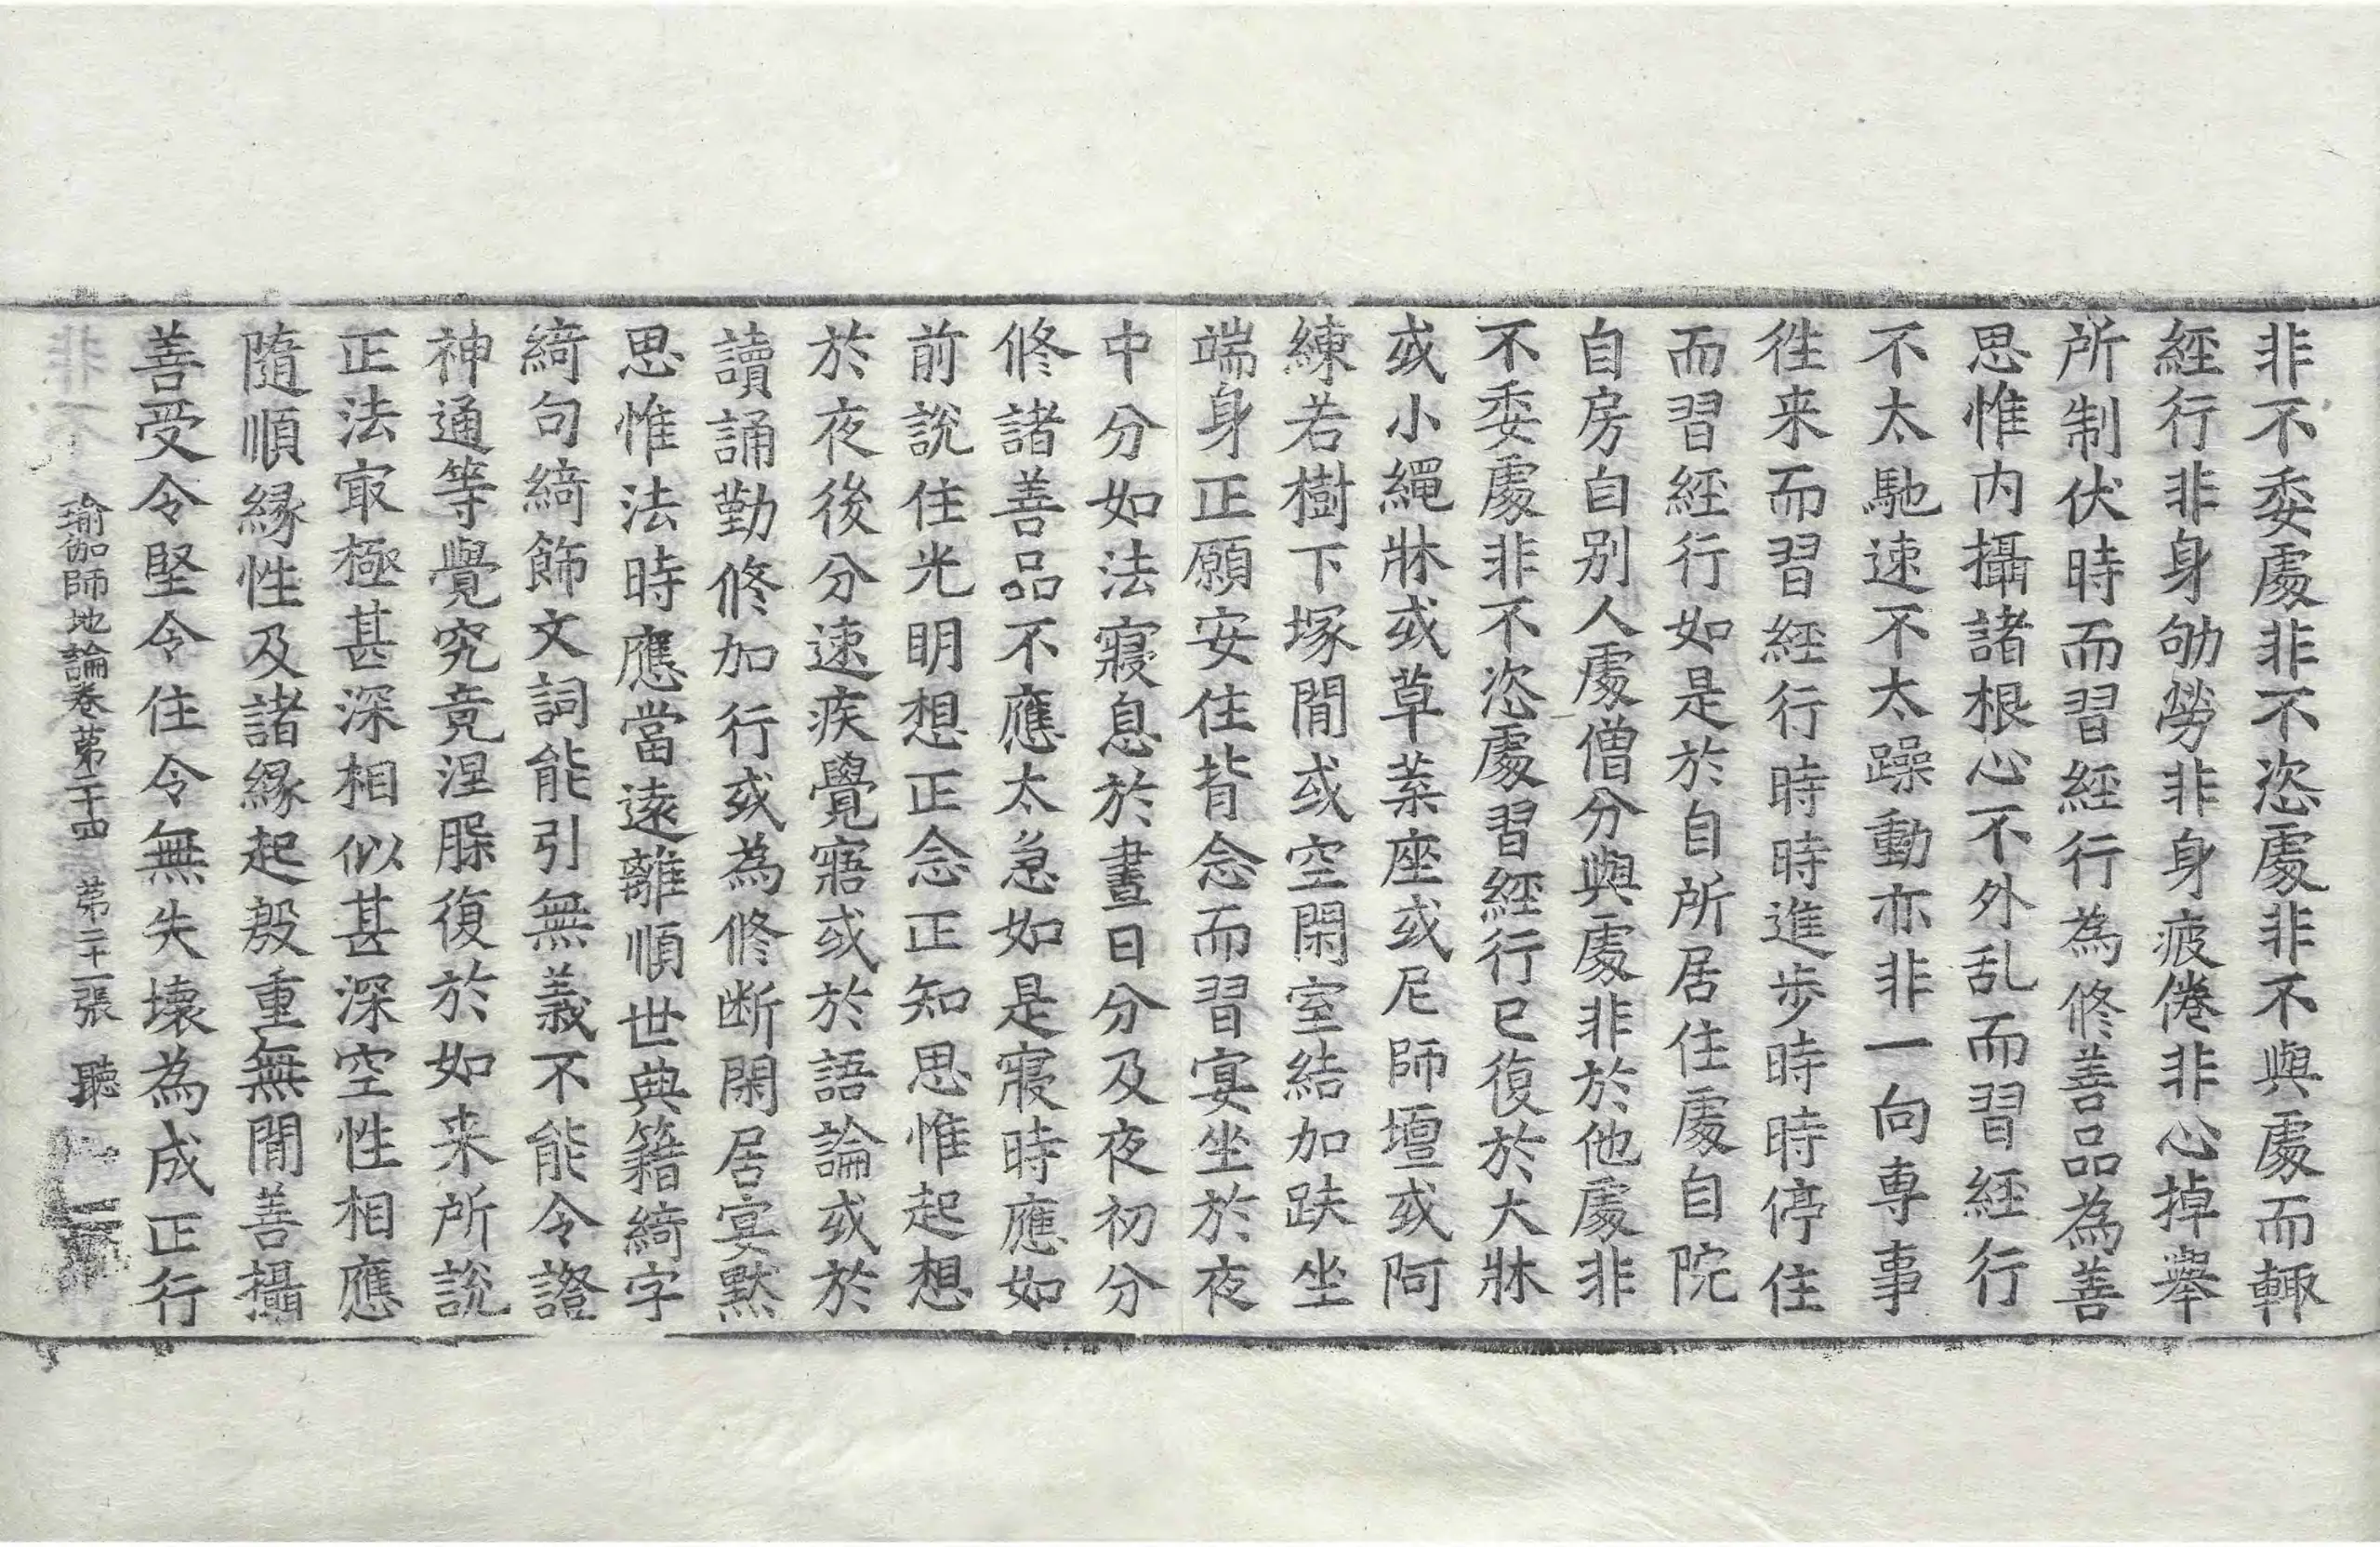 非不委處非不恣處非不與處而輙
經行非身劬勞非身疲倦非心掉舉
所制伏時而習經行為修善品為善
思惟内攝諸根心不外乱而習經行
不太馳速不太躁動亦非一向專事
徃来而習經行時時進步時時停住
而習經行如是於自所居住處自院
自房自别人處僧分與處非於他處非
不委處非不恣處習經行已復於大牀
或小繩牀或草葉座或尼師壇或阿
練若樹下塚閒或空閑室結加趺坐
端身正願安住背念而習宴坐於夜
中分如法寢息於晝日分及夜初分
修諸善品不應太急如是寢時應如
前說住光明想正念正知思惟起想
於夜後分速疾覺寤或於語論或於
讀誦勤修加行或為修断閑居宴默
思惟法時應當遠離順世典籍綺字
綺句綺飾文詞能引無義不能令證
神通等覺究竟涅脲復於如来所說
正法㝡極甚深相似甚深空性相應
隨順縁性及諸縁起殷重無閒善攝
善受令堅令住令無失壞為成正行
瑜伽師地論卷第二十四 第二十一張 聽